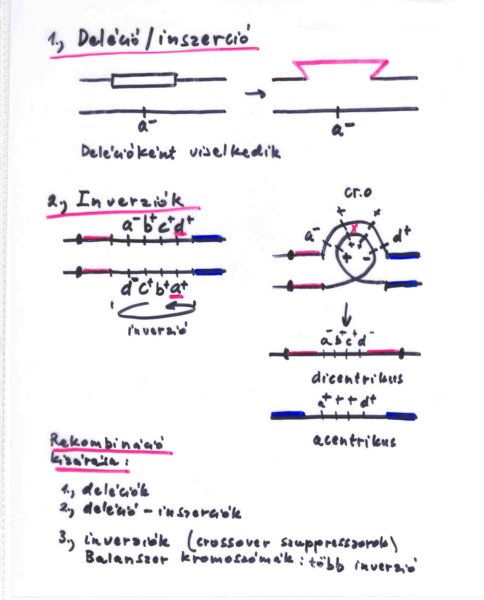 1., Deléció/inszerció
a⁻
a⁻
Delécióként viselkedik
2., Inverziók
a⁻ b⁺ c⁺ d⁺
d⁻ c⁺ b⁺ a⁺
inverzió
cr.o
a⁻ + + d⁺
+ +
a⁻ b⁺ c⁺ d⁻
dicentrikus
a⁺ + + d⁺
acentrikus
Rekombináció
kizárása:
1., deléciók
2., deléció - inszerciók
3., inverziók (crossover szuppresszorok)
Balanszer kromoszómák: több inverzió